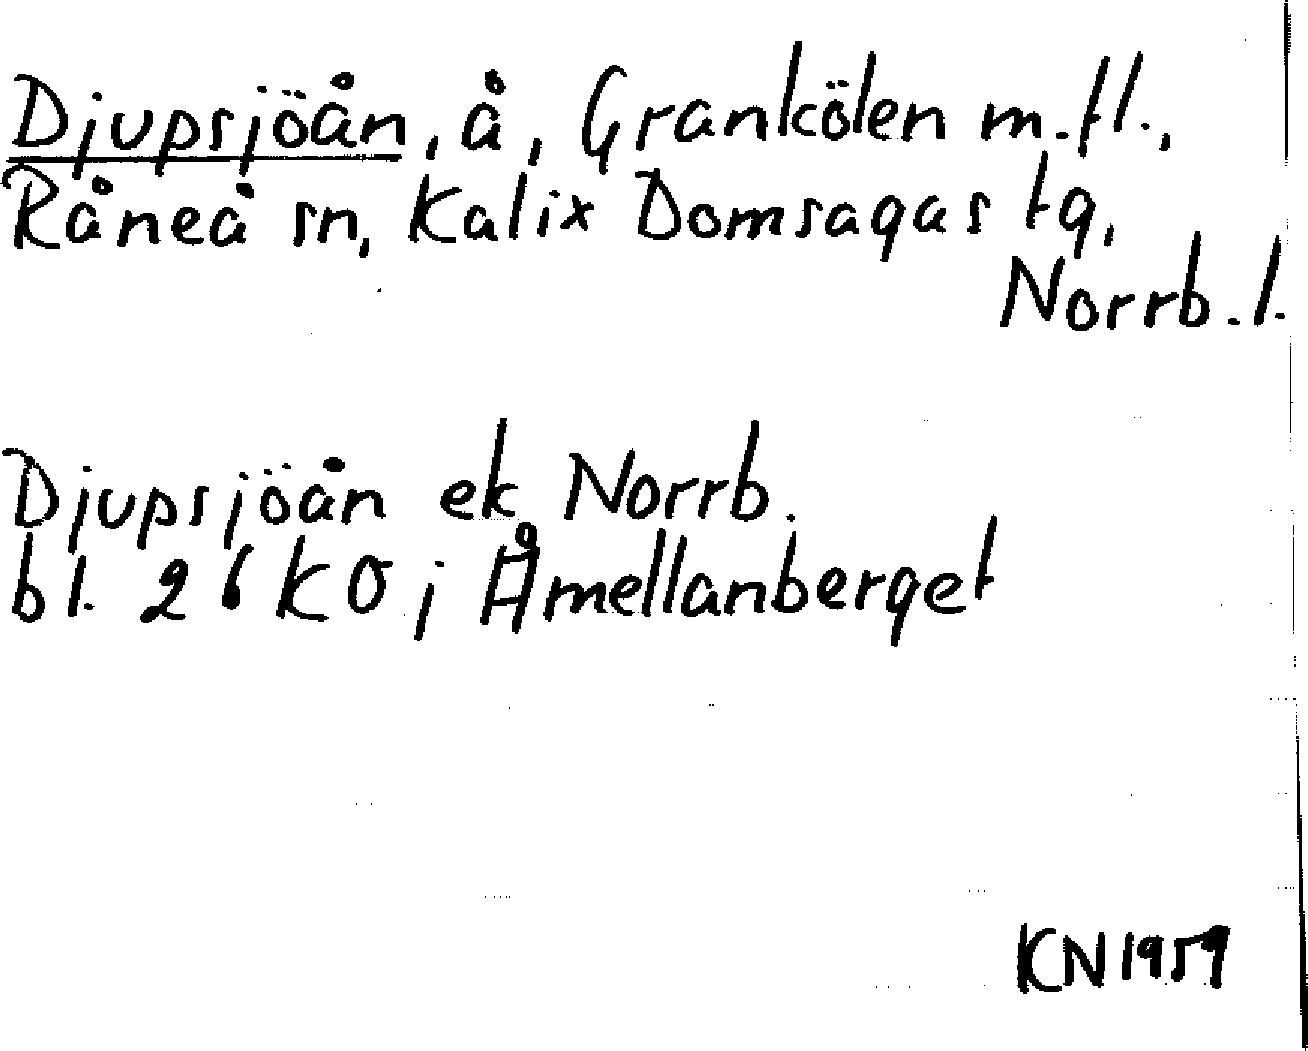 Djupsjöån, å, Grankölen m.fl.,
Råneå sn, Kalix Domsagas tg,
Norrb.l.
Djupsjöån ek Norrb.
bl. 26 KO i Åmellanberget
KN 1959